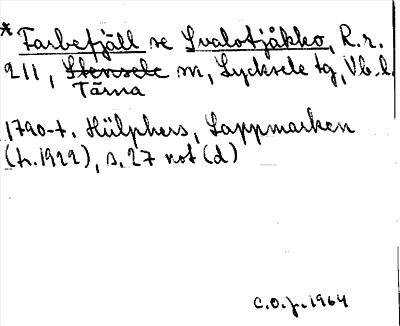 * Farbefjäll se Svalotjåkko, R.r.
211, Stensele m, Lycksele tg, Vb.l.
Tärna
1790-t. Hülphers, Lappmarken
(tr. 1922), s. 27 not (d)
C.O.J. 1964